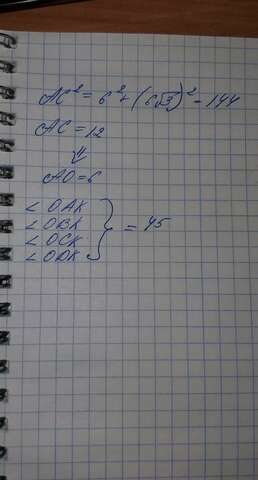 AC² = 6² + (6√3)² = 144
AC = 12
⇓
AO = 6
∠OAK
∠OBK
∠OCK
∠ODK
} = 45